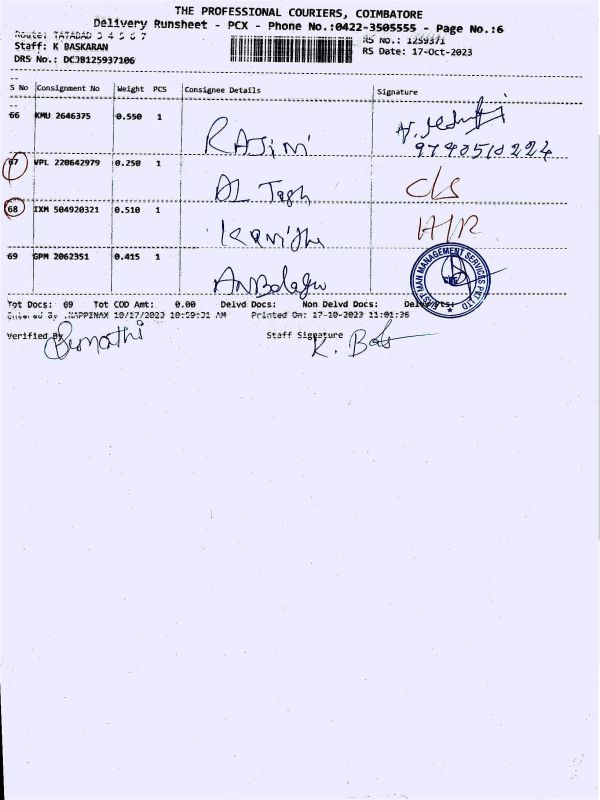 THE PROFESSIONAL COURIERS, COIMBATORE
Delivery Runsheet - PCX - Phone No.:0422-3505555 - Page No.:6
Route: TATABAD 3 4 5 6 7
RS No.: 1259371
Staff: K BASKARAN
RS Date: 17-Oct-2023
DRS No.: DCJB125937106
S No Consignment No Weight PCS Consignee Details Signature
66 KMU 2646375 0.550 1 RAJINI
9798510224
67 VPL 220642979 0.250 1 DL C/S
68 IXM 504920321 0.510 1
69 GPM 2062351 0.415 1
MANAGEMENT SERVICES PVT LTD
Tot Docs: 69 Tot COD Amt: 0.00 Delvd Docs: Non Delvd Docs:
Entered By .NAPPINAX 10/17/2023 10:59:31 AM Printed On: 17-10-2023 11:01:36
Verified By Staff Signature
K.